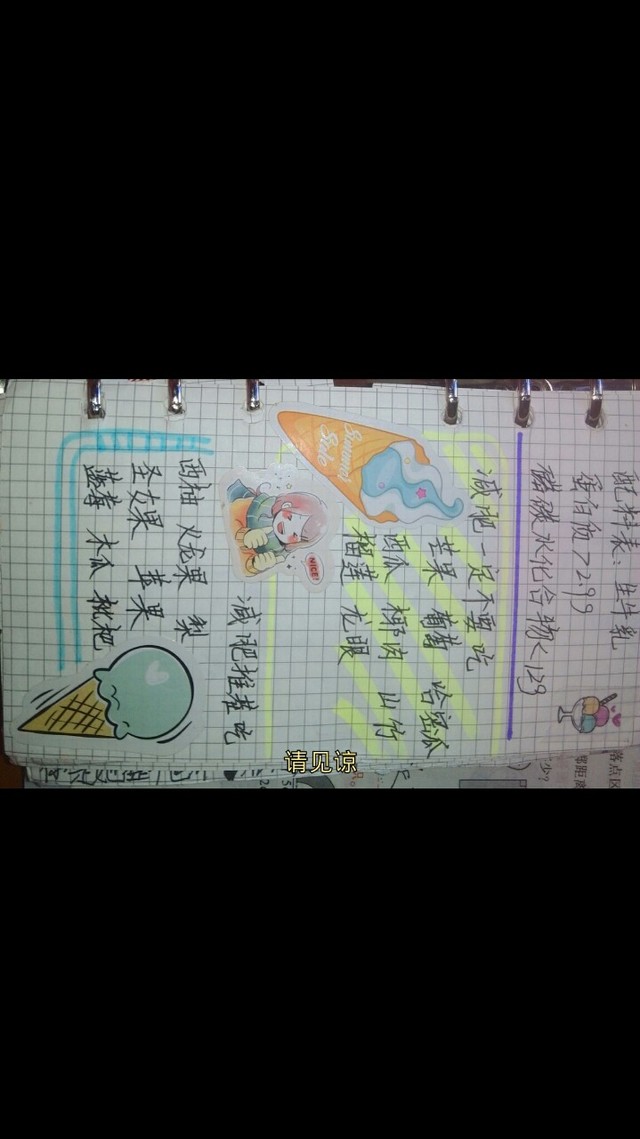 配料表：生牛乳
蛋白质>2.9g
碳水化合物<12g
减肥一定不要吃
芒果 葡萄 哈密瓜
西瓜 椰肉 山竹
榴莲 龙眼
Summer
Side
NICE!
减肥推荐吃
西柚 火龙果 梨
圣女果 苹果
蓝莓 木瓜 枇杷
请见谅
落点区